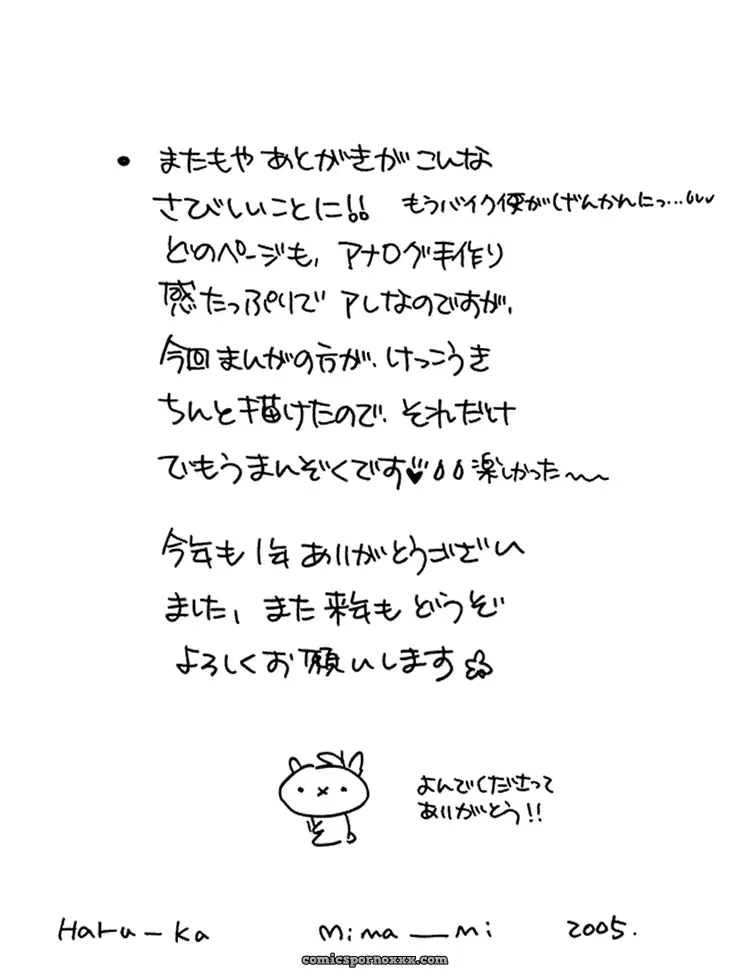 • またもや あとがきが こんな
さびしいことに!! もうバイク便がげんかんにっ…
どのページも、アナログ手作り
感たっぷりで アレなのですが、
今回まんがの方が、けっこうき
ちんと描けたので、それだけ
でもうまんぞくです♥ 楽しかった〜〜
今年も1年ありがとうござい
ました、また来年もどうぞ
よろしくお願いします
よんでくださって
ありがとう!!
Haru-ka Mina_mi 2005.
comicspornoxxx.com